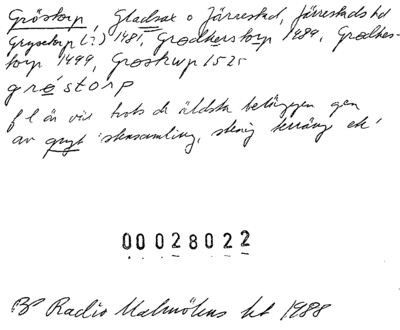 Gröstorp, Gladsax o Järrestad, Järrestads hd
Grysetorp (?) 1481, Grødkerstorp 1489, Grødkes-
torp 1499, Grostrup 1525
gröstorp
f l är väl trots de äldsta beläggen gen
av gryt 'stensamling, stenig terräng etc'
00028022
BP Radio Malmöhus ht 1988